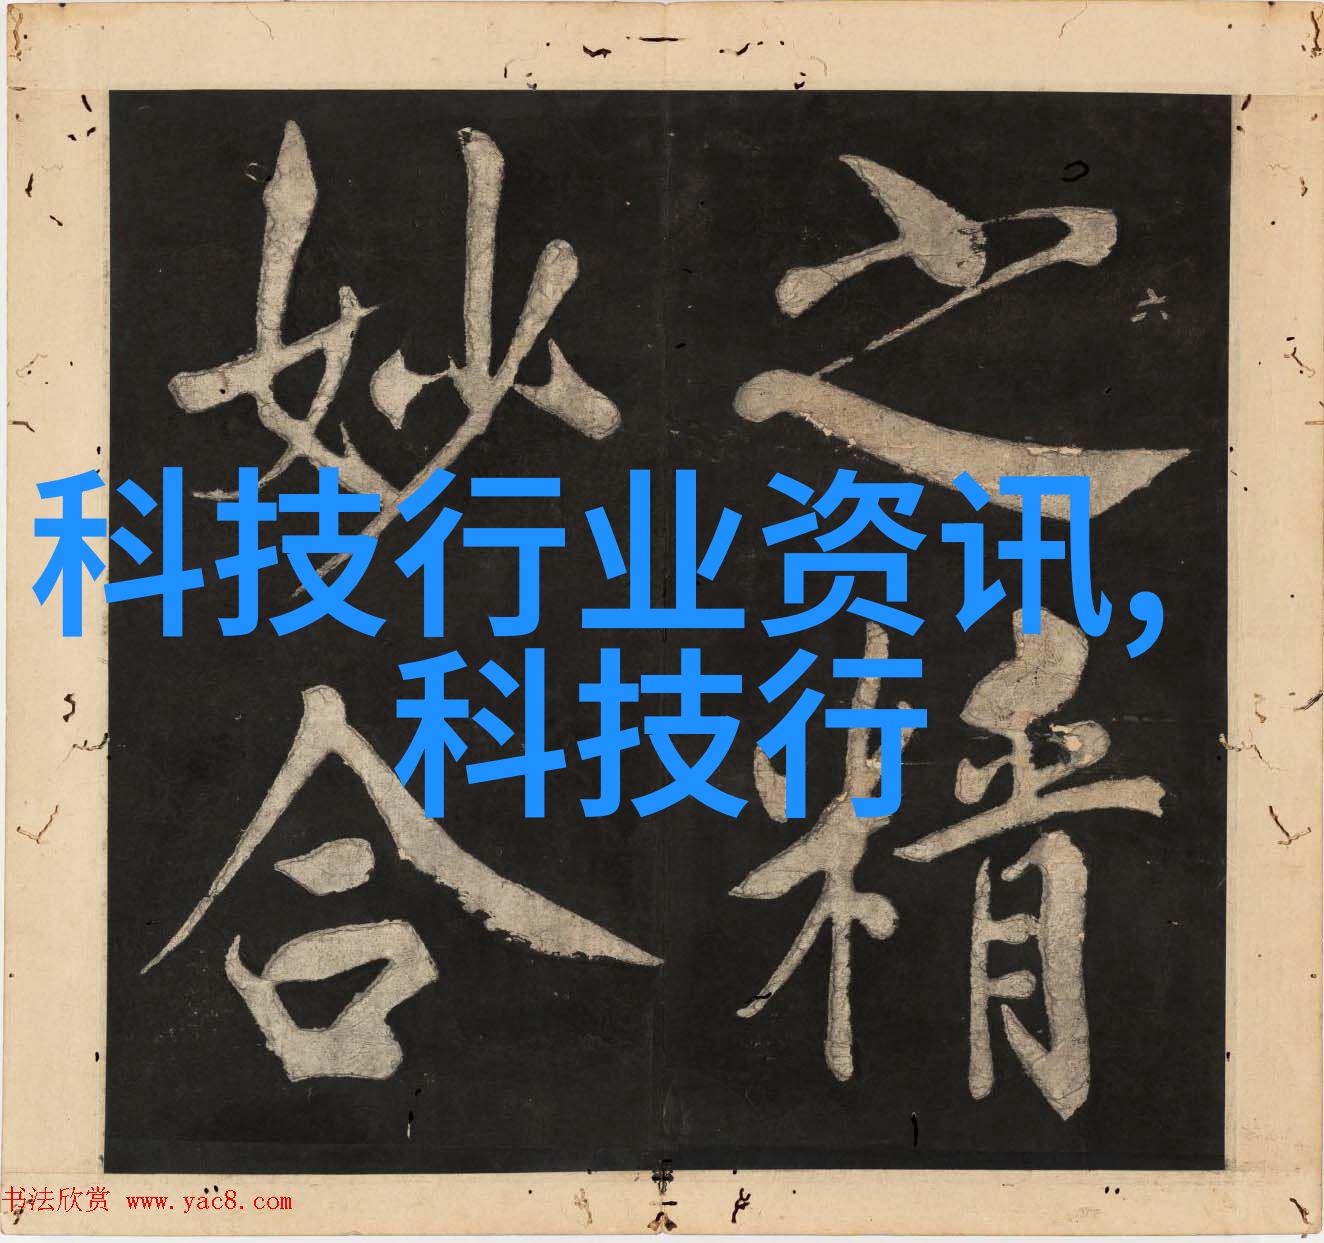 之精
妙合
六
科技行业资讯,
科技行
书法欣赏 www.yac8.com